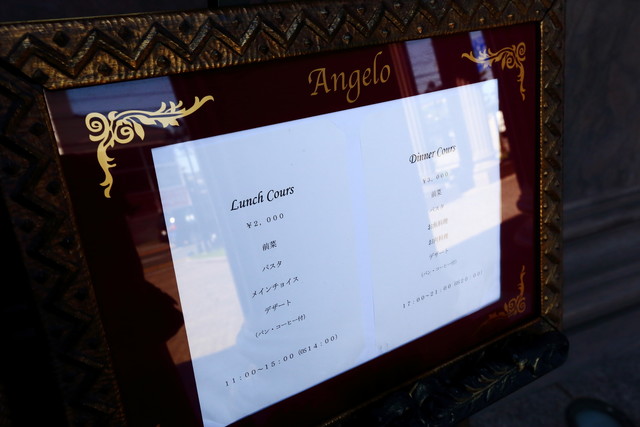 Angelo
Lunch Cours
¥2，000
前菜
パスタ
メインチョイス
デザート
(パン・コーヒー付)
11：00～15：00 (OS14：00)
Dinner Cours
前菜
パスタ
お魚料理
お肉料理
デザート
(パン・コーヒー付)
17：00～21：00